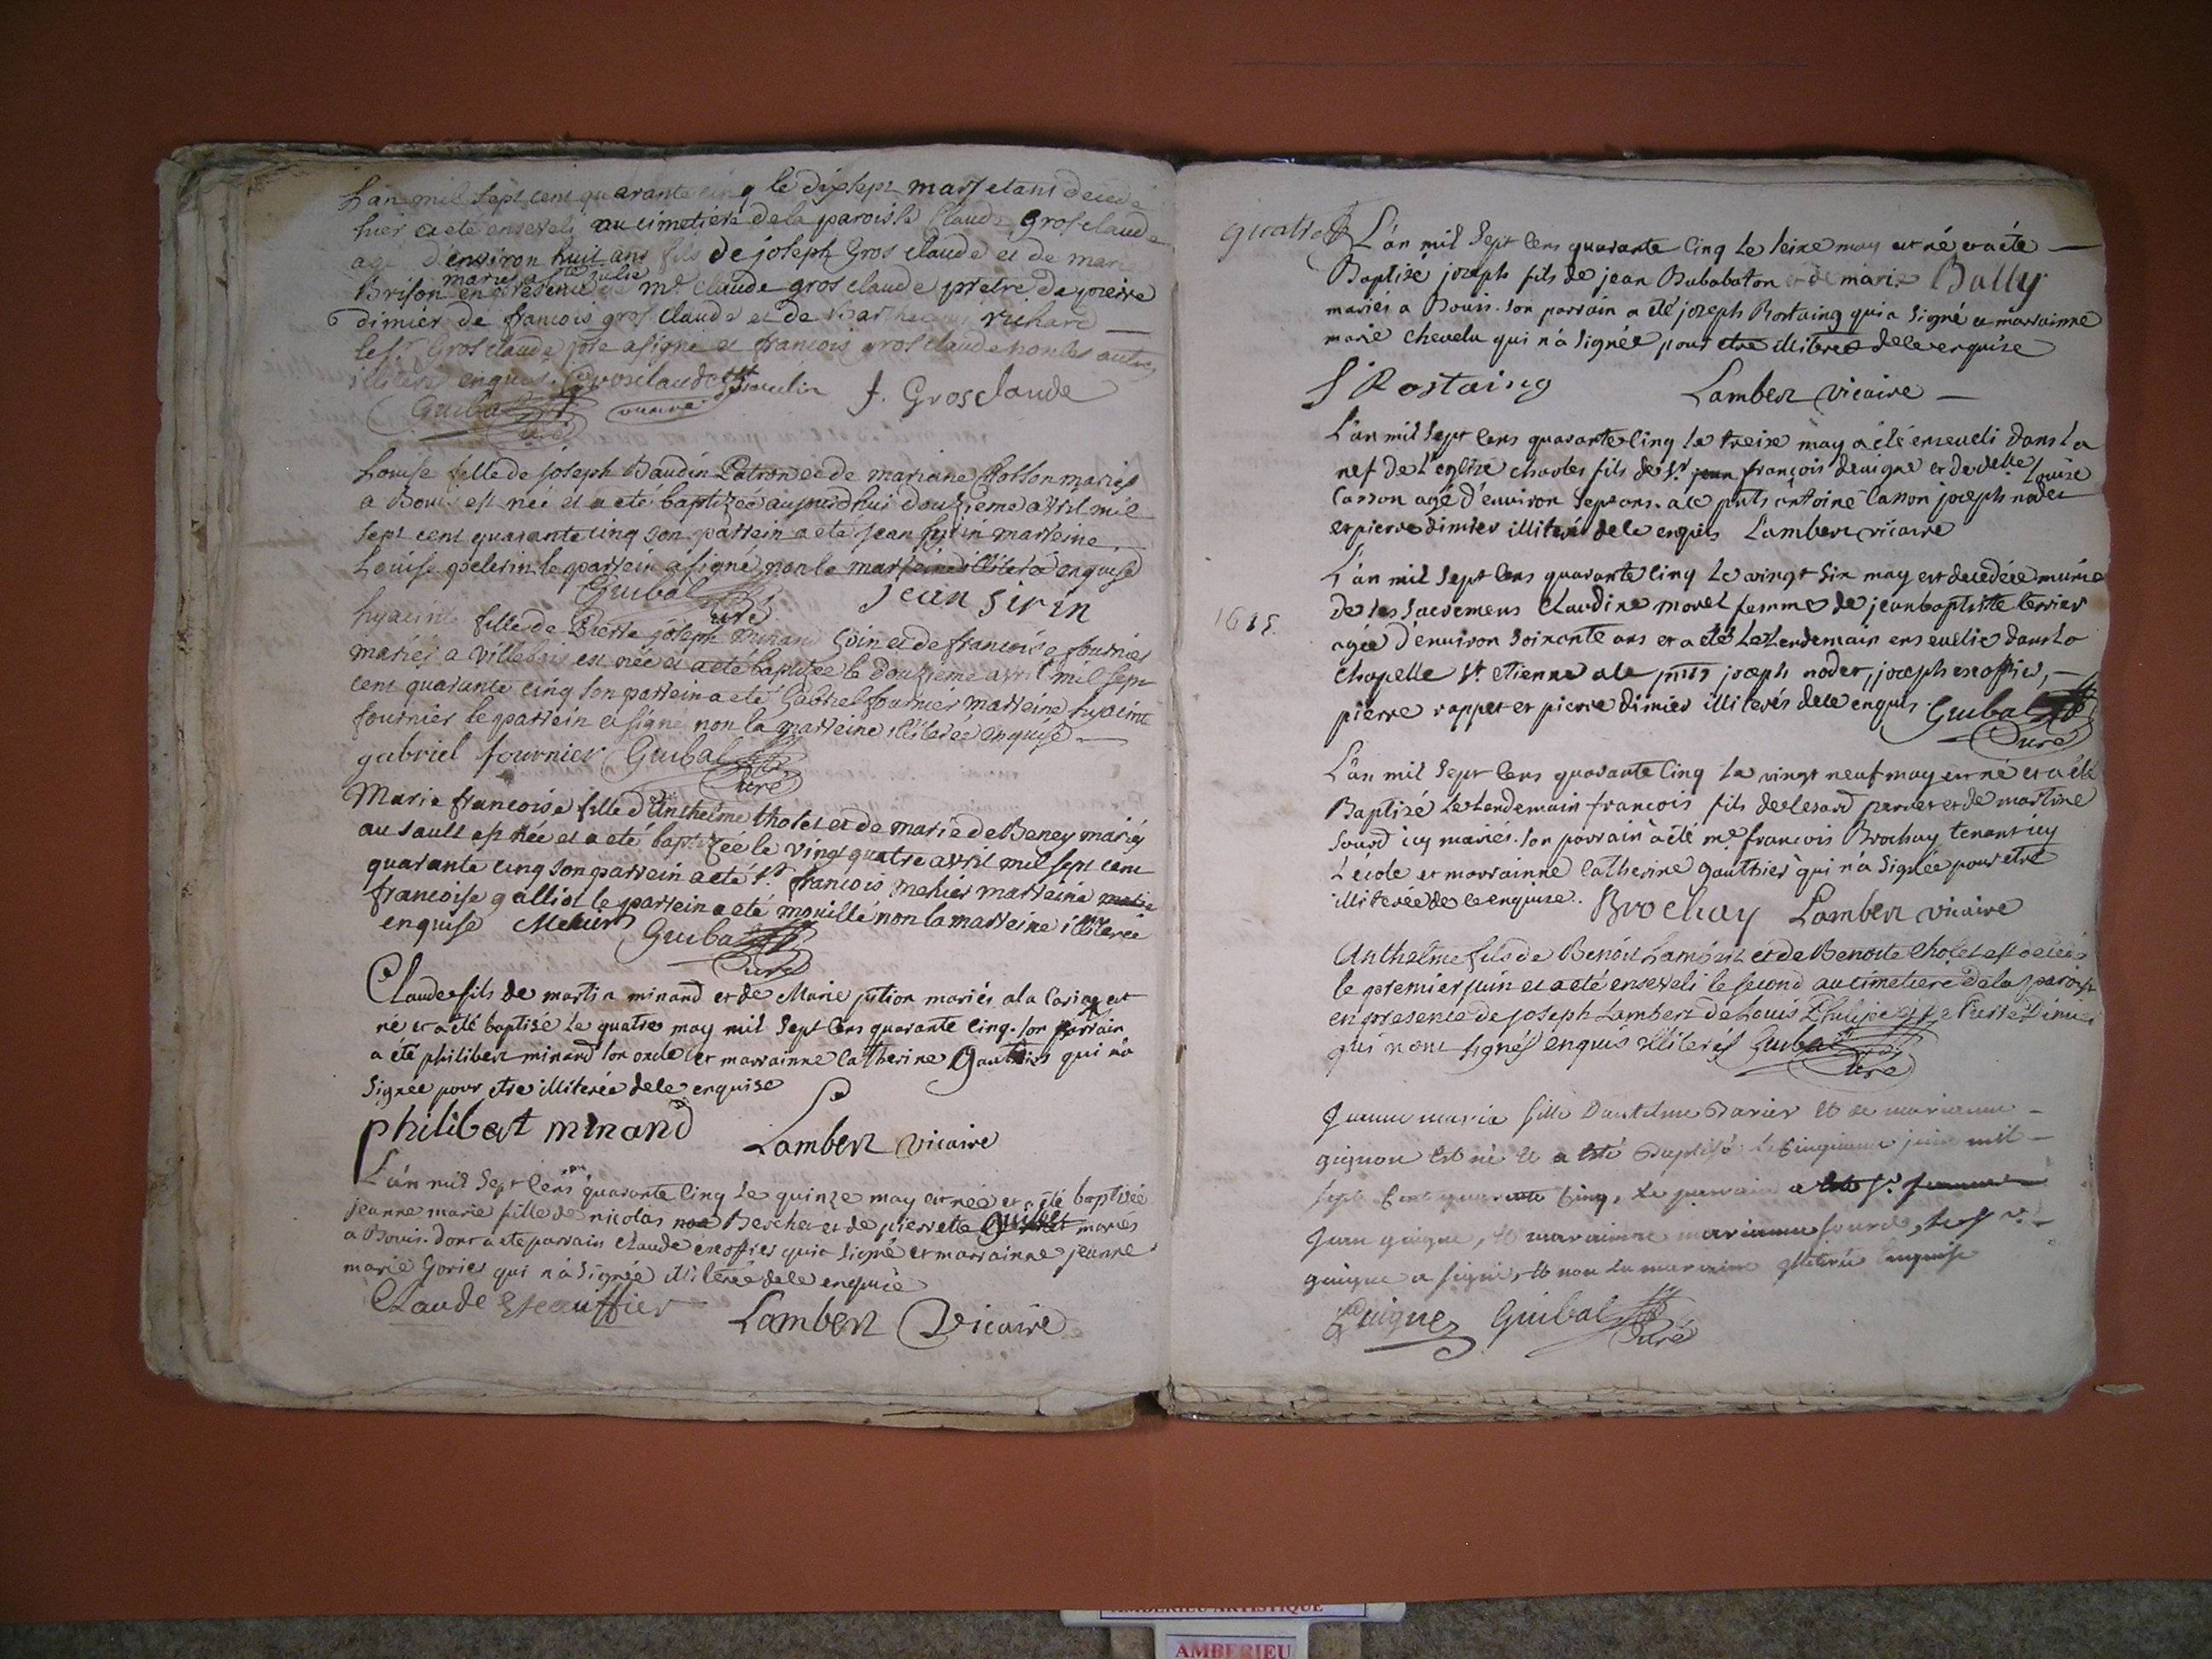 L'an mil sept cent quarante cinq le dixsept mars etant decede
hier a eté enseveli au cimetiere de la paroisse Claude Grosclaude
agé d'environ huit ans fils de joseph Gros claude et de marie
mariés a ste julie
Brison en presence de mre Claude gros claude pretre de pierre
dimier de francois gros claude et de richard
le sr Gros claude ptre a signé et francois gros claude non les autres
illiteré enquis. Grosclaude
f. Grosclaude
Guibal
curé
Louise fille de joseph Baudin Patron et de mariane mariés
a Bouis est née et a eté baptizée aujourdhui douzieme avril mil
sept cent quarante cinq son parrein a eté jean sirin marreine
Louise pelerin le parrein a signé non la marreine illiterée enquise
Guibal curé jean sirin
hyacinte fille de Pierre joseph minand Goin et de francoise fournier
mariés a villebois est née et a eté baptizée le douzieme avril mil sept
cent quarante cinq son parrein a eté Gabriel fournier marreine hyacinte
fournier le parrein a signé non la marreine illiterée enquise
gabriel fournier Guibal
curé
Marie francoise fille d'Anthelme tholet et de marie de Beney mariés
au sault est née et a eté baptizée le vingt quatre avril mil sept cent
quarante cinq son parrein a eté sr francois mehier marreine
francoise galliot le parrein a eté mouillé non la marreine illiterée
enquise Mehier Guibal
curé
Claude fils de martin minand et de Marie jution mariés a la est
né et a été baptisé le quatre may mil sept cens quarante cinq. son parrain
a été philibert minand son oncle et marrainne catherine Gauthier qui n'a
signée pour etre illiterée de ce enquise
philibert minand Lambert vicaire
L'an mil sept cens quarante cinq le quinze may est née et a été baptisée
jeanne marie fille de nicolas Berchet et de pierrette mariés
a Bouis. dont a eté parrain claude écoffier qui a signé et marrainne jeanne
marie Gorier qui n'a signée illiterée de ce enquise
Claude Lambert Vicaire
quatre L'an mil sept cens quarante cinq le seize may est né et a été
Baptisé joseph fils de jean Bubabaton et de marie Bally
mariés a Bouis. son parrain a été joseph Rostaing qui a signé et marrainne
marie chevelu qui n'a signée pour etre illiterée de ce enquise
J Rostaing Lambert vicaire
L'an mil sept cens quarante cinq le treize may a été enseveli dans la
nef de l'eglise charles fils de sr jean françois devigne et de delle Louise
Casson agé d'environ sept ans. a ce pnts antoine Casson joseph nodet
et pierre dimier illiterés de ce enquis Lambert vicaire
L'an mil sept cens quarante cinq le vingt six may est decedée munie
de ses sacremens Claudine morel femme de jean baptiste terrier
1615.
agée d'environ soixante ans et a été le lendemain ensevelie dans la
chapelle st etienne a ce pnts joseph nodet, joseph escoffier,
pierre rappet et pierre dimier illiterés de ce enquis. Guibal
curé
L'an mil sept cens quarante cinq le vingt neuf may est né et a été
Baptisé le lendemain francois fils de lesard pernet et de martine
sourd icy mariés. son parrain a été mre francois Brochay tenant icy
L'école et marrainne catherine gauthier qui n'a signée pour etre
illiterée de ce enquise. Brochay Lambert vicaire
Anthelme fils de Benoit Lambert et de Benoite tholet est decedé
le premier juin et a eté enseveli le second au cimetiere de la paroisse
en presence de joseph Lambert de Louis Philipe et de Pierre Dimier
qui n'ont signés enquis illiterés Guibal
curé
Jeanne marie fille D'antelme Darier et de marianne
guignon est né et a esté Baptisé le cinquieme juin mil
sept cent quarante cinq, le parrain a esté sr
Jean guigue, et maraine marianne sourd, le sr
guigue a signé, et non la maraine illiterée enquise
Guigue Guibal
curé
AMBERIEU ARTISTIQUE
AMBERIEU